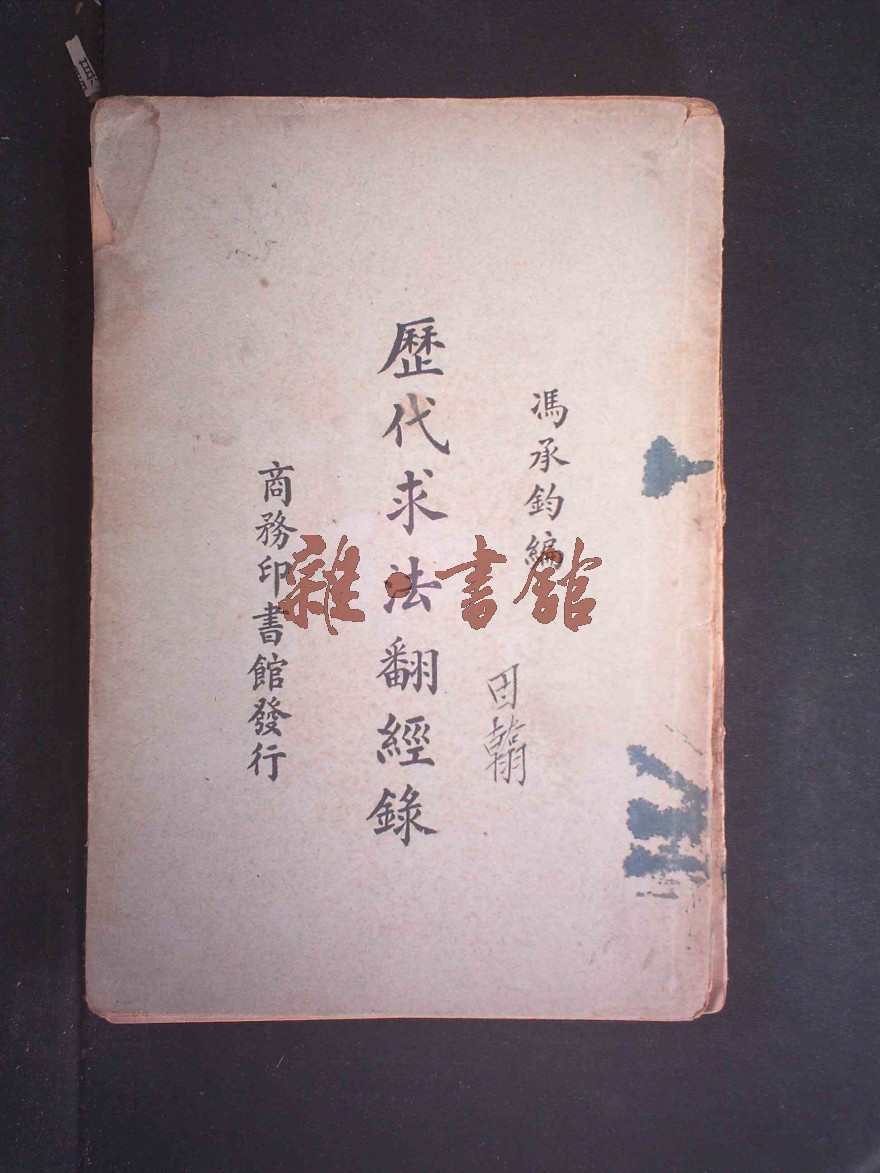 馮承鈞編
歷代求法翻經錄
商務印書館發行
雜·書館